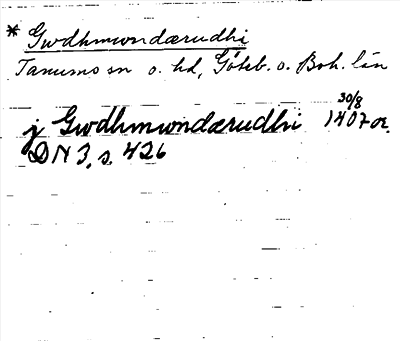 * Gwdhmwndærudhi
Tanums sn o. hd, Göteb. o. Boh. län
j Gwdhmwndærudhi 30/8 1407 or.
DN 3, s. 426